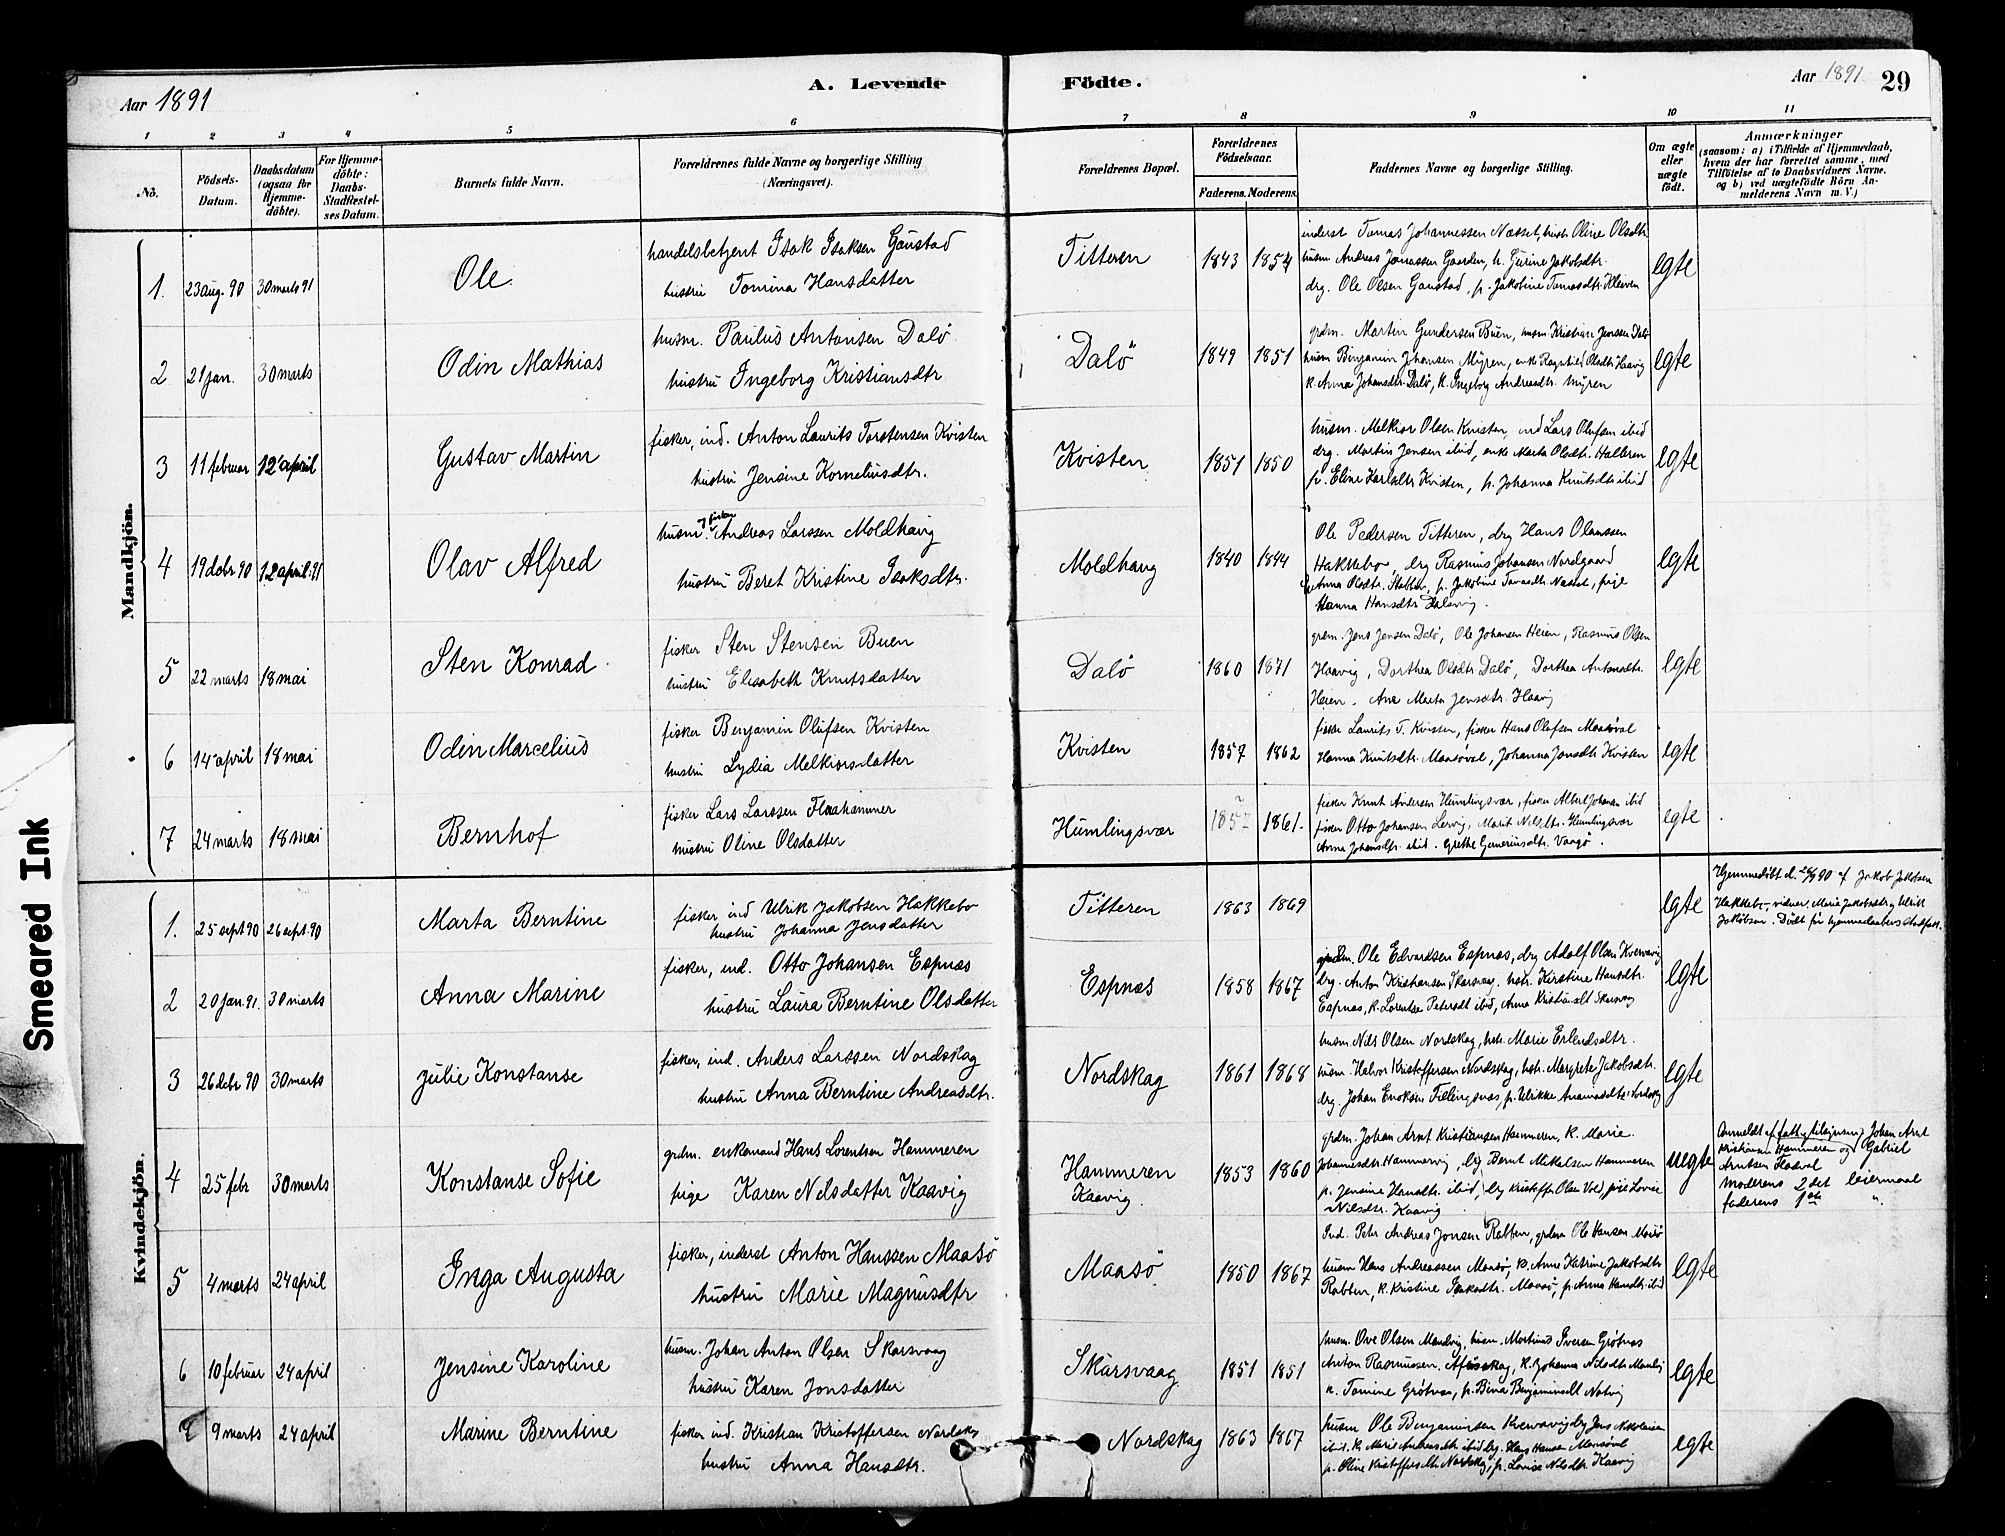 Aar 1891
A. Levende Födte.
Aar 1891 29
1 2 3 4 5 6 7 8 9 10 11
No.
Födsels-
Datum.
Daabsdatum
(ogsaa for
Hjemme-
döbte).
For Hjemme-
döbte:
Daabs-
Stadfæstel-
ses Datum.
Barnets fulde Navn.
Forældrenes fulde Navne og borgerlige Stilling
(Næringsvei).
Forældrenes Bopæl.
Forældrenes
Födselsaar.
Faderens. Moderens.
Faddernes Navne og borgerlige Stilling.
Om ægte
eller
uægte
födt.
Anmærkninger
(saasom: a) i Tilfælde af Hjemmedaab,
hvem der har forrettet samme, med
Tilföielse af to Daabsvidners Navne,
og b) ved uægtefödte Börn An-
melderens Navn m. V.)
Mandkjön.
1. 23 aug. 90 30 marts 91 Ole
handelsbetjent Isak Isaksen Gaustad
hustru Tomina Hansdatter
Titteren 1843 1854
inderst Tomas Johannessen Næsset, hustr. Oline Olsdtr
husm Andreas Jonassen Gaarden, h. Gurine Jakobsdtr.
drg. Ole Olsen Gaustad, p. Jakobine Tomasdtr. Kleiven
egte
2. 21 jan. 30 marts Odin Mathias
husm. Paulus Antonsen Dalö
hustru Ingeborg Kristiansdtr
Dalö 1849 1851
grdm. Martin Gundersen Buen, husm. Kristian Jenssen Dalö
husm Benjamin Johansen Myren, enke Ragnhild Olsdtr Haavig
k. Anna Johansdtr. Dalö, k. Ingeborg Andreasdtr. Myren
egte
3 11 februar 12 april Gustav Martin
fisker, ind. Anton Laurits Torstensen Kvisten
hustru Jensine Korneliusdtr.
Kvisten 1851 1850
husm. Melkior Olsen Kvisten, ind Lars Olufsen ibid
drg. Martin Jensen ibid, enke Marta Olsdtr. Halleren
p. Eline Karlsdtr Kvisten, p. Johanna Knutsdtr ibid
egte
4 19 debr 90 12 april 91 Olav Alfred
husm. og fisker Andreas Larssen Moldhaug
hustru Beret Kristine Isaksdtr.
Moldhaug 1840 1844
Ole Pedersen Titteren, drg Hans Olaussen
Hakkebo, drg Rasmus Johansen Nordgaard
Anna Olsdtr. Stabben, p. Jakobine Tomasdtr Næsset, pige
Hanna Hansdtr Dalavig.
egte
5 22 marts 18 mai Sten Konrad
fisker Sten Stensen Buen
hustru Elisabeth Knutsdatter
Dalö 1860 1871
grdm. Jens Jensen Dalö, Ole Johansen Heien, Rasmus Olsen
Haavig, Dorthea Olsdtr Dalö, Dorthea Antonsdtr.
Heien. Ane Marta Jensdtr. Haavig
egte
6 14 april 18 mai Odin Marcelius
fisker Benjamin Olufsen Kvisten
hustru Lydia Melkiorsdatter
Kvisten 1857 1862
fisker Laurits T. Kvisten, fisker Hans Olafsen Maasöval
Hanna Knutsdtr. Maasöval, Johanna Jonsdtr Kvisten
egte
7 24 marts 18 mai Bernhof
fisker Lars Larssen Flaahammer
hustru Oline Olsdatter
Humlingsvær 1857 1861.
fisker Knut Andersen Humlingsvær, fisker Albert Johansen ibid
fisker Otto Johansen Lervig, Marit Nilsdtr. Humlingsvær
Anna Johansdtr. ibid. Grethe Gunneriusdtr. Vaagö.
egte
Kvindekjön.
1. 25 sept 90 26 sept 90 Marta Berntine
fisker ind Ulrik Jakobsen Hakkebo
hustru Johanna Jensdatter
Titteren 1863 1869
egte
Hjemmedöbt d. 26/9 90 af Jakob Jakobsen
Hakkebo, vidner: Marie Jakobsdtr og Ulrik
Jakobsen. Dödt för hjemmedaabens stadfæst.
2 20 jan. 91. 30 marts Anna Marine
fisker, ind. Otto Johansen Espnæs
hustru Laura Berntine Olsdatter
Espnæs 1858 1867
grdm. Ole Edvardsen Espnæs, drg Adolf Olsen Kvervavig
drg. Anton Kristiansen Skarsvaag. hstr. Kirstine Hansdtr.
Espnæs, k. Lorentse Petersdt ibid, Anna Kristiansdt Skarsvaag
egte
3 26 debr 90 30 marts Julie Konstanse
fisker, ind. Anders Larssen Nordskag
hustru Anna Berntine Andreasdtr.
Nordskag 1861 1868
husm. Nils Olsen Nordskag, hstr. Marie Erlendsdtr.
husm. Halvor Kristoffersen Nordskag, hstr. Margrete Jakobsdtr.
drg. Johan Enoksen Fillingsnæs, p. Ulrikke Nordskag
egte
4 25 febr 30 marts Konstanse Sofie
grdm. enkemand Hans Lorentsen Hammeren
pige Karen Nilsdatter Kaavig
Hammeren
Kaavig. 1853 1860
grdm. Johan Arnt Kristiansen Hammeren, k. Marie
Johannesdtr Hammervig, drg Bernt Mikalsen Hammeren
p. Jensine Hansdtr. ibid, drg Kristoffer Olsen Vol, pige Lovise
Nilsdtr. Kaavig
uegte
Anmeldt Johan Arnt
Kristiansen Hammeren og Gabriel
Arntsen Fladval
moderens 2det leiermaal
faderens 1ste "
5 4 marts 24 april Inga Augusta
fisker, inderst Anton Hanssen Maasö
hustru Marie Magnusdtr
Maasö 1850 1867
Ind. Petr Andreas Jonsen Rabben, grdm Ole Hansen Maasö
husm Hans Andreassen Maasö, k. Anne Katrine Jakobsdtr
Rabben, k. Kristine Isaksdtr. Maasö, p. Anna Hansdtr. ibid
egte
6 10 februar 24 april Jensine Karoline
husm. Johan Anton Olsen Skarsvaag
hustru Karen Jonsdatter
Skarsvaag 1851 1851
husm. Ove Olsen Mandvig, husm. Martinus Iversen Grötnæs
Anton Rasmussen, k. Johanna Nilsdtr
k. Tomine Grötnæs, p. Bina Benjaminsdt
egte
7 9 marts 24 april Marine Berntine
fisker ind. Kristian Kristoffersen Nordskag
hustru Anna Hansdtr.
Nordskag 1863 1867
husm Ole Benjaminsen Kvervavig drg Jens Nikolaisen
ibid. k. Marie Andreasdtr ibid drg. Hans Hansen Maasöval
p. Oline Kristoffersdtr. Nordskag, p. Lovise Nilsdtr Kaavig
egte
Smeared Ink